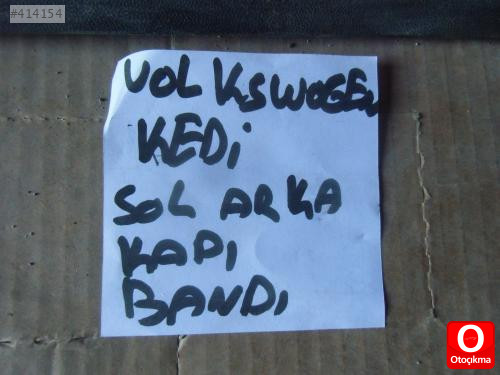 #414154
VOLKSWOGEN
KEDİ
SOL ARKA
KAPI
BANDI
Otoçıkma